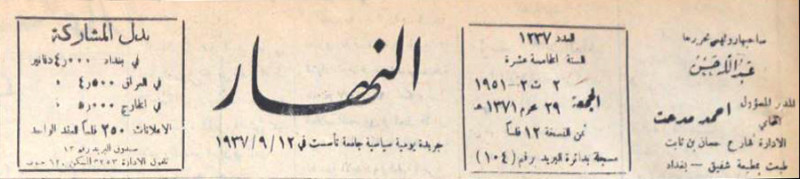 صاحبها ورئيس تحريرها
عبد الله حسين
المدير المسؤول
المحامي
احمد مدحت
الادارة شارع حسان بن ثابت
طبعت بمطبعة شفيق - بغداد
العدد ١٢٣٧
السنة الخامسة عشرة
الجمعة
٢ ت٢ - ١٩٥١
٢٩ محرم ١٣٧١ هـ
ثمن النسخة ١٢ فلساً
مسجلة بدائرة البريد برقم (١٠٤)
النهار
جريدة يومية سياسية جامعة تأسست في ١٢ / ٩ / ١٩٣٧
بدل المشاركة
في بغداد ٤٫٠٠٠ دنانير
في العراق ٤٫٥٠٠ «
في الخارج ٥٫٠٠٠ «
الاعلانات ٢٥٠ فلساً للعقد الواحد
صندوق البريد رقم ١٣
تلفون الادارة ٣٢٥٣